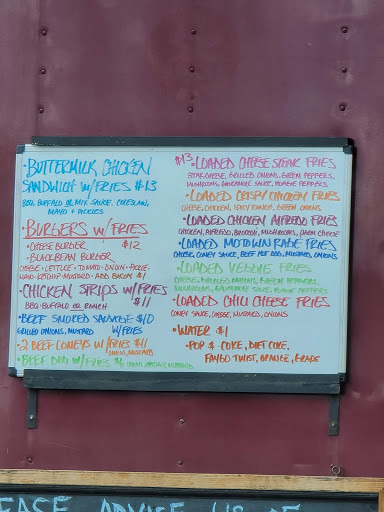 • BUTTERMILK CHICKEN
SANDWICH W/FRIES $13
BBQ, BUFFALO OR MIX SAUCE, COLESLAW,
MAYO + PICKLES
• BURGERS W/ FRIES
• CHEESE BURGER $12
• BLACKBEAN BURGER
CHEESE • LETTUCE • TOMATO • ONION • PICKLE •
MAYO • KETCHUP • MUSTARD • ADD BACON $1
• CHICKEN STRIPS W/FRIES
BBQ • BUFFALO OR RANCH $11
• BEEF SMOKED SAUSAGE $10
GRILLED ONIONS, MUSTARD W/FRIES
• 2 BEEF CONEYS W/FRIES $11
ONIONS, MUSTARD
• BEEF DOG W/FRIES
$13 • LOADED CHEESE STEAK FRIES
STEAK, CHEESE, GRILLED ONIONS, GREEN PEPPERS,
MUSHROOMS, SAUCE, PEPPERS
• LOADED CRISPY CHICKEN FRIES
CHEESE, CHICKEN, SPICY RANCH, GREEN ONIONS
• LOADED CHICKEN ALFREDO FRIES
CHICKEN, ALFREDO, BROCCOLI, MUSHROOMS, PARM CHEESE
• LOADED MOTOWN RAGE FRIES
CHEESE, CONEY SAUCE, BEEF HOT DOG, MUSTARD, ONIONS
• LOADED VEGGIE FRIES
CHEESE, GRILLED ONIONS, GREEN PEPPERS,
MUSHROOMS, SAUCE, PEPPERS
• LOADED CHILI CHEESE FRIES
CONEY SAUCE, CHEESE, MUSTARD, ONIONS
• WATER $1
• POP $ COKE, DIET COKE,
FAYGO TWIST, ORANGE, GRAPE
EASE ADVISE US OF